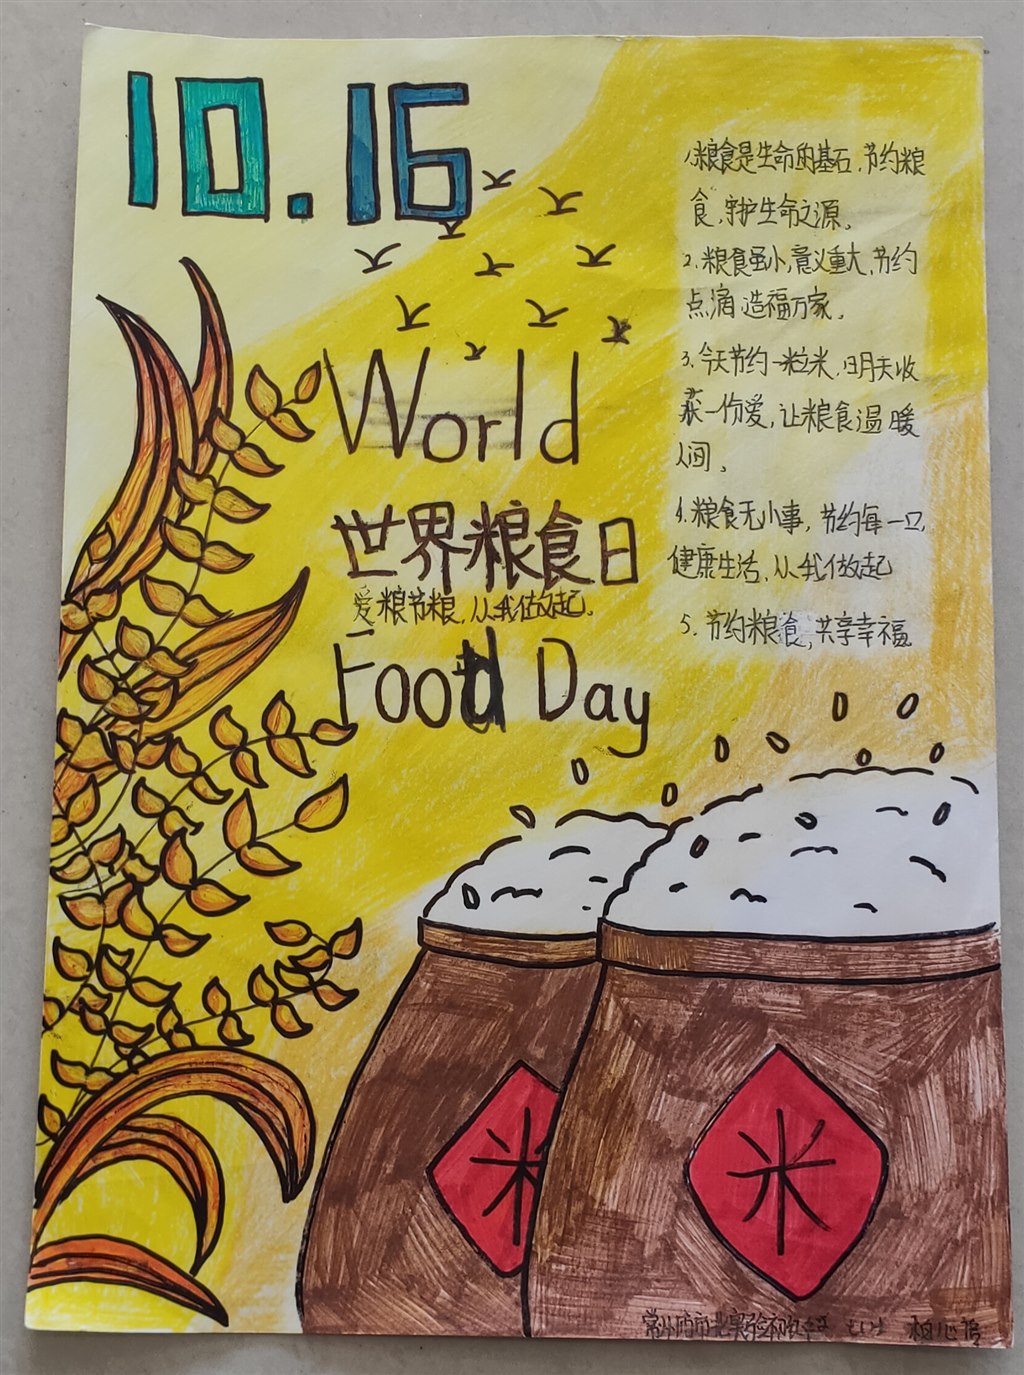 10.16
World
世界粮食日
爱粮节粮,从我做起。
Food Day
1.粮食是生命的基石,节约粮
食,守护生命之源。
2.粮食虽小,意义重大,节约
点滴,造福万家。
3.今天节约一粒米,明天收
获一份爱,让粮食温暖
人间。
4.粮食无小事,节约每一口,
健康生活,从我做起
5.节约粮食,共享幸福
米
米
常州市北实验初级中学